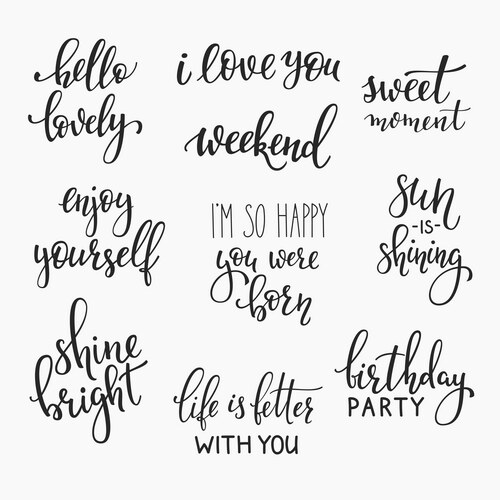 hello
lovely
i love you
weekend
sweet
moment
enjoy
yourself
I'M SO HAPPY
you were
born
sun
-IS-
shining
shine
bright
life is better
WITH YOU
birthday
PARTY